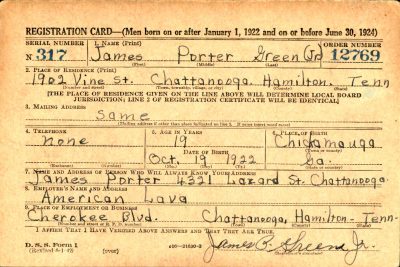 REGISTRATION CARD—(Men born on or after January 1, 1922 and on or before June 30, 1924)
SERIAL NUMBER 1. NAME (Print) ORDER NUMBER
N 317 James Porter Green (Jr) 12769
(First) (Middle) (Last)
2. PLACE OF RESIDENCE (Print)
1902 Vine St. Chattanooga, Hamilton, Tenn
(Number and street) (Town, township, village, or city) (County) (State)
[THE PLACE OF RESIDENCE GIVEN ON THE LINE ABOVE WILL DETERMINE LOCAL BOARD
JURISDICTION; LINE 2 OF REGISTRATION CERTIFICATE WILL BE IDENTICAL]
3. MAILING ADDRESS
Same
[Mailing address if other than place indicated on line 2. If same insert word same]
4. TELEPHONE 5. AGE IN YEARS 6. PLACE OF BIRTH
none 19 Chickamauga
DATE OF BIRTH (Town or county)
Oct, 19, 1922 Ga.
(Exchange) (Number) (Mo.) (Day) (Yr.) (State or country)
7. NAME AND ADDRESS OF PERSON WHO WILL ALWAYS KNOW YOUR ADDRESS
James Porter 4321 Lazard St. Chattanooga.
8. EMPLOYER'S NAME AND ADDRESS
American Lava
9. PLACE OF EMPLOYMENT OR BUSINESS
Cherokee Blvd. Chattanooga, Hamilton - Tenn-
(Number and street or R. F. D. number) (Town) (County) (State)
I AFFIRM THAT I HAVE VERIFIED ABOVE ANSWERS AND THAT THEY ARE TRUE.
D. S. S. Form 1
(Revised 6-1-42) (over) James P. Greene Jr.